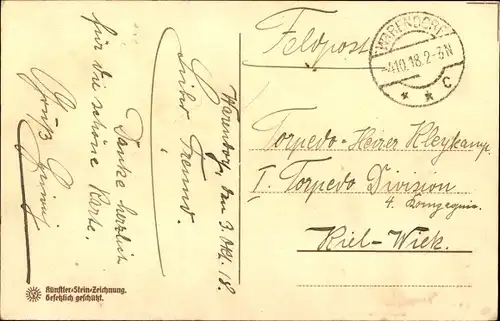 Warendorf, den 3. Okt. 18.
Lieber Freund!
Danke herzlich
für die schöne Karte.
Gruß
Künstler-Stein-Zeichnung.
Gesetzlich geschützt.
Feldpost
WARENDORF
-4.10.18.2-3N
* * c
Torpedo-Heizer Kleykamp
I. Torpedo Division
4. Kompagnie.
Kiel-Wiek.